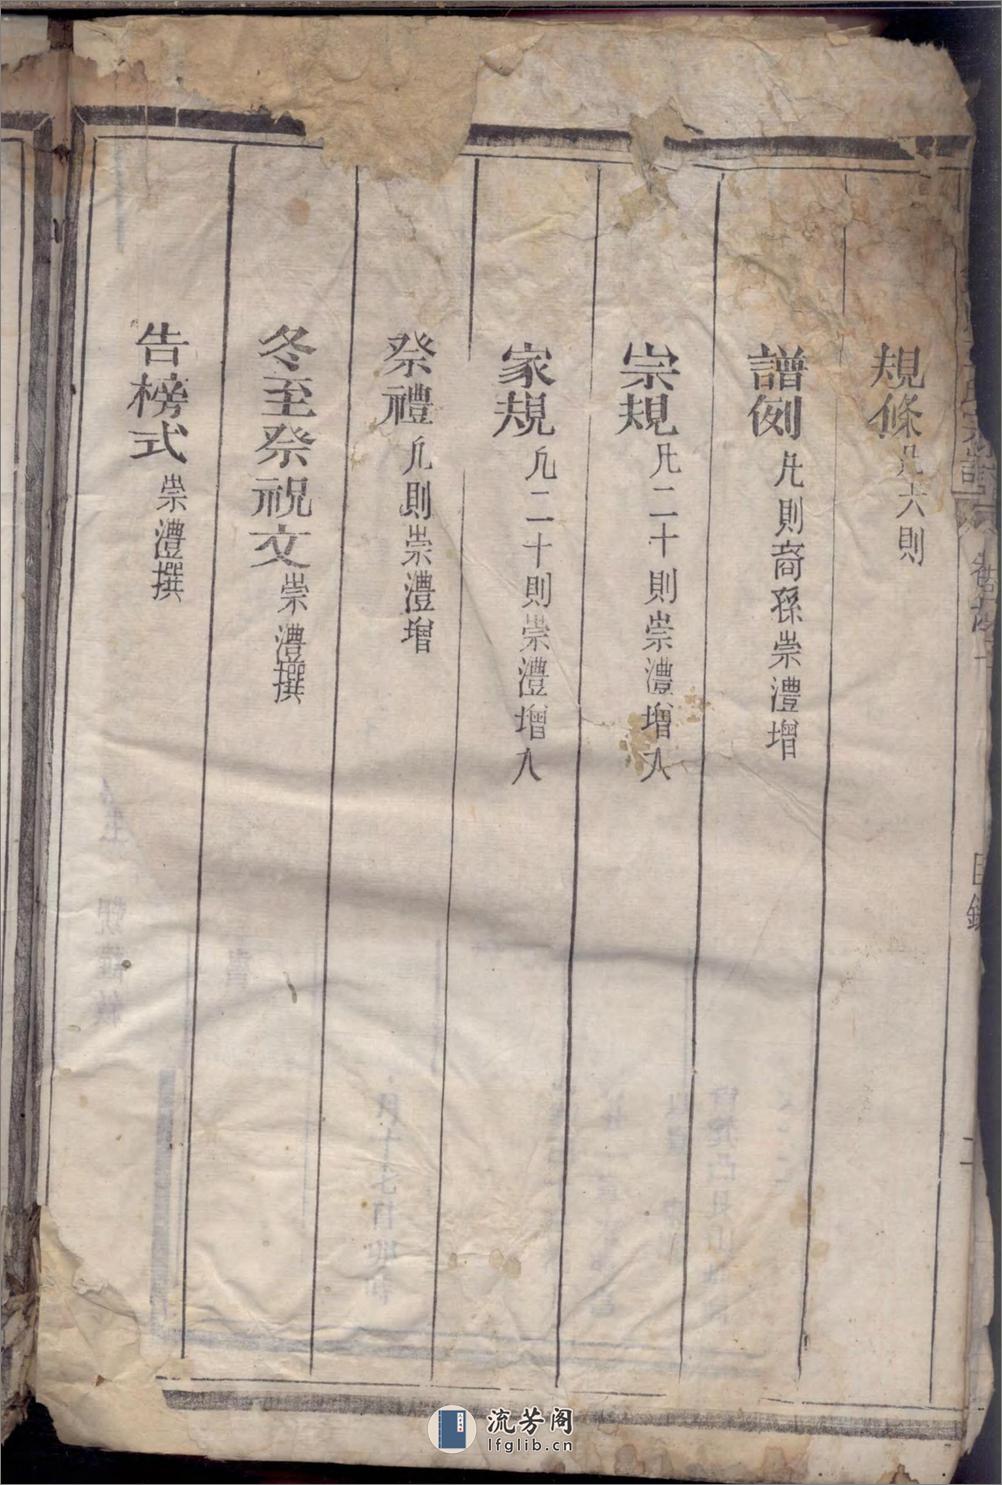 目錄
規條凡六則
譜例凡則裔孫崇澧增
崇規凡二十則崇澧增入
家規凡二十則崇澧增入
祭禮凡則崇澧增
冬至祭祝文崇澧撰
告榜式崇澧撰
流芳阁
lfglib.cn